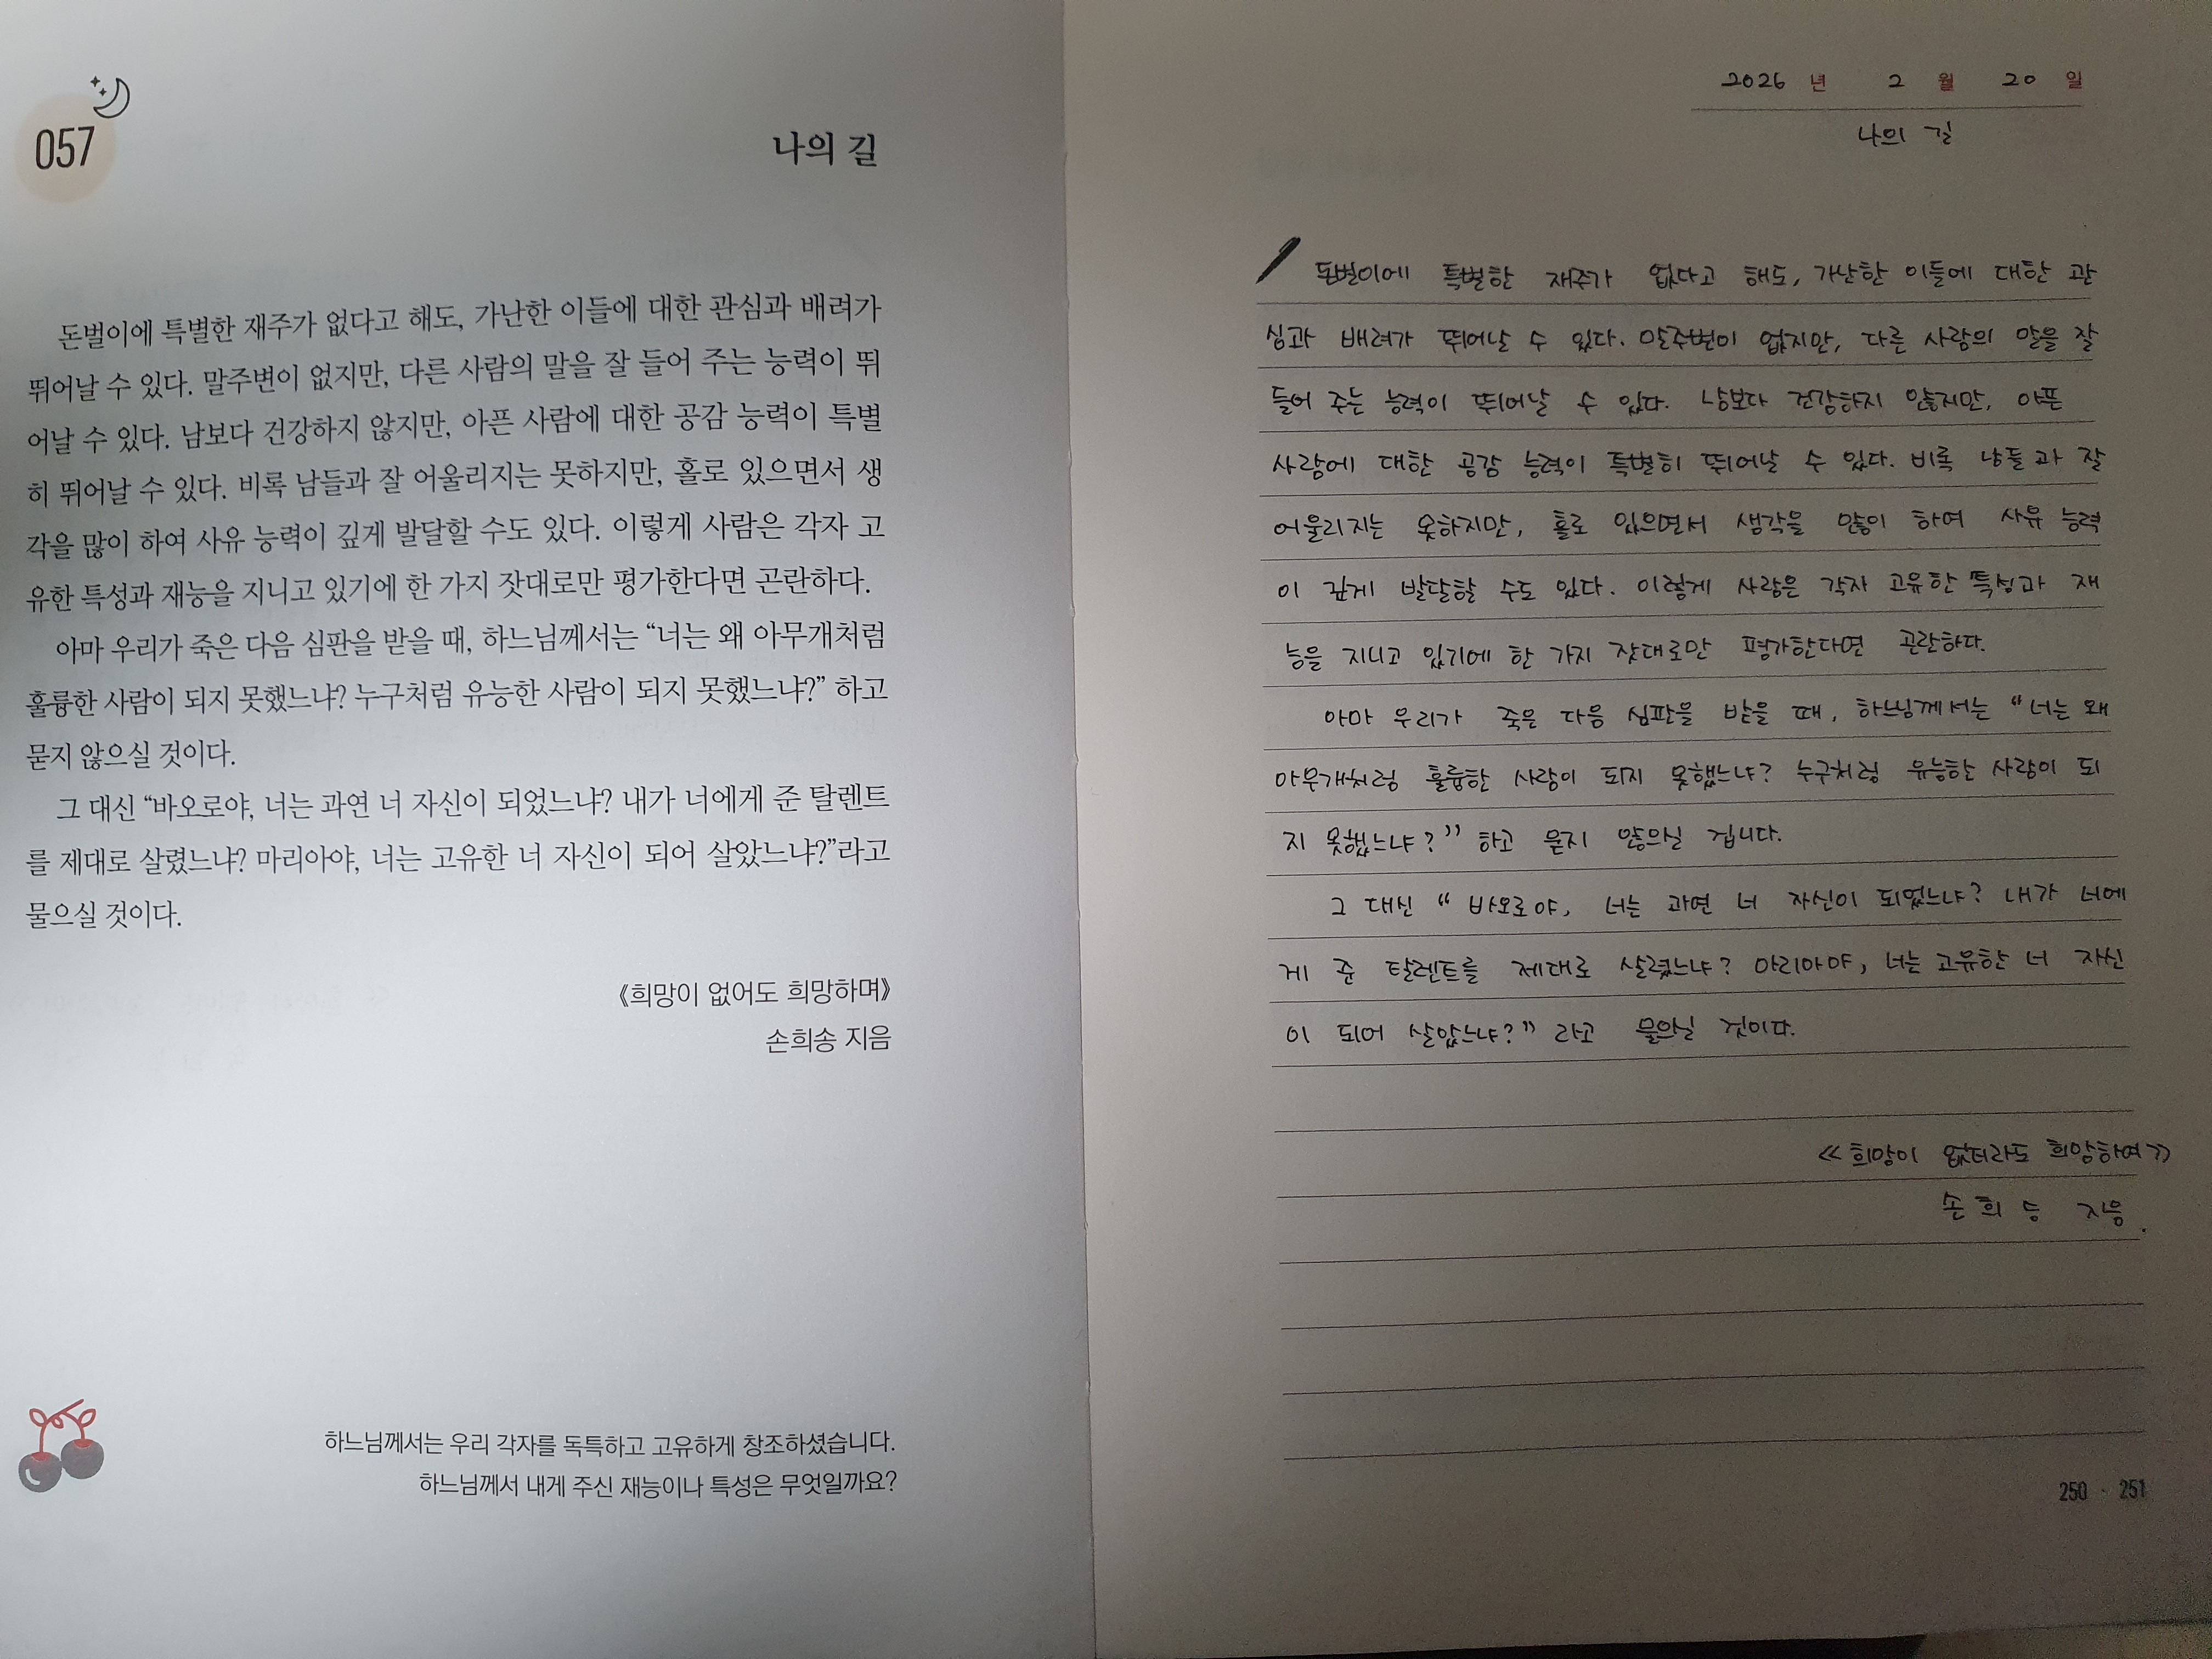 057
나의 길
돈벌이에 특별한 재주가 없다고 해도, 가난한 이들에 대한 관심과 배려가
뛰어날 수 있다. 말주변이 없지만, 다른 사람의 말을 잘 들어 주는 능력이 뛰
어날 수 있다. 남보다 건강하지 않지만, 아픈 사람에 대한 공감 능력이 특별
히 뛰어날 수 있다. 비록 남들과 잘 어울리지는 못하지만, 홀로 있으면서 생
각을 많이 하여 사유 능력이 깊게 발달할 수도 있다. 이렇게 사람은 각자 고
유한 특성과 재능을 지니고 있기에 한 가지 잣대로만 평가한다면 곤란하다.
아마 우리가 죽은 다음 심판을 받을 때, 하느님께서는 “너는 왜 아무개처럼
훌륭한 사람이 되지 못했느냐? 누구처럼 유능한 사람이 되지 못했느냐?” 하고
묻지 않으실 것이다.
그 대신 “바오로야, 너는 과연 너 자신이 되었느냐? 내가 너에게 준 탈렌트
를 제대로 살렸느냐? 마리아야, 너는 고유한 너 자신이 되어 살았느냐?”라고
물으실 것이다.
《희망이 없어도 희망하며》
손희송 지음
하느님께서는 우리 각자를 독특하고 고유하게 창조하셨습니다.
하느님께서 내게 주신 재능이나 특성은 무엇일까요?
2026 년 2 월 20 일
나의 길
돈벌이에 특별한 재주가 없다고 해도, 가난한 이들에 대한 관
심과 배려가 뛰어날 수 있다. 말주변이 없지만, 다른 사람의 말을 잘
들어 주는 능력이 뛰어날 수 있다. 남보다 건강하지 않지만, 아픈
사람에 대한 공감 능력이 특별히 뛰어날 수 있다. 비록 남들과 잘
어울리지는 못하지만, 홀로 있으면서 생각을 많이 하여 사유 능력
이 깊게 발달할 수도 있다. 이렇게 사람은 각자 고유한 특성과 재
능을 지니고 있기에 한 가지 잣대로만 평가한다면 곤란하다.
아마 우리가 죽은 다음 심판을 받을 때, 하느님께서는 “너는 왜
아무개처럼 훌륭한 사람이 되지 못했느냐? 누구처럼 유능한 사람이 되
지 못했느냐?” 하고 묻지 않으실 겁니다.
그 대신 “바오로야, 너는 과연 너 자신이 되었느냐? 내가 너에
게 준 탈렌트를 제대로 살렸느냐? 마리아야, 너는 고유한 너 자신
이 되어 살았느냐?” 라고 물으실 것이다.
《희망이 없더라도 희망하며》
손희송 지음.
250 · 251